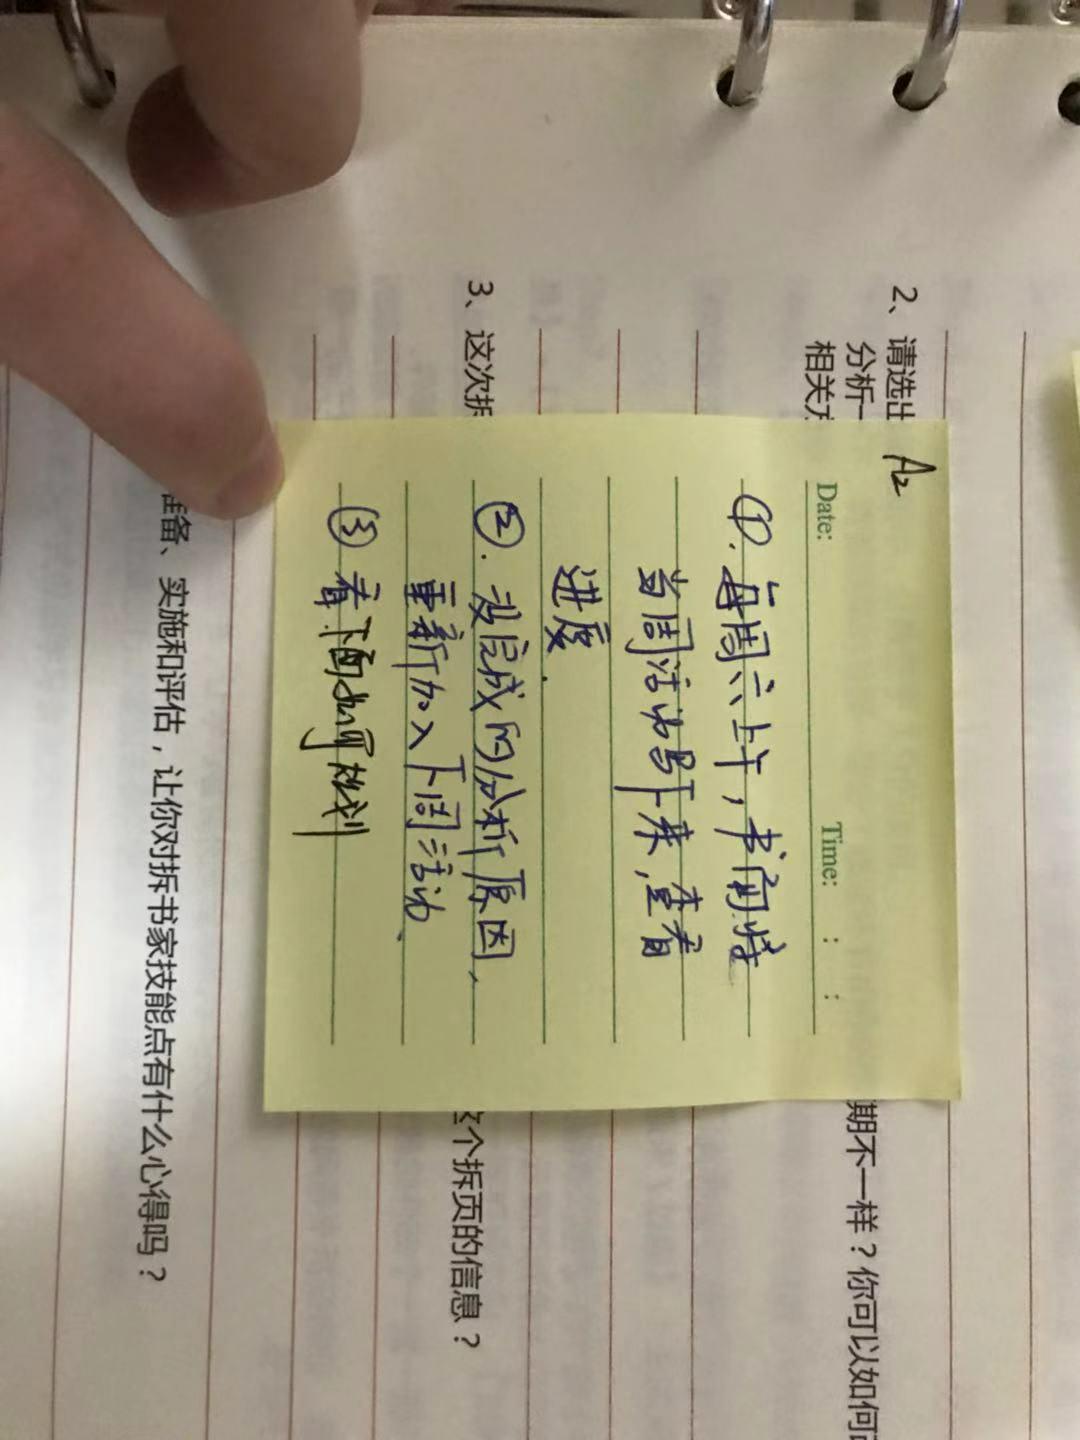 2、请选出
分析一 期不一样？你可以如何
相关
A2
Date: Time: : :
①. 每周六上午，
当周活动 下来，查看
进度.
②. 没完成的分析原因、
重新加入下周活动、
③ 看下 如何规划
3、这次拆 个拆页的信息？
准备、实施和评估，让你对拆书家技能点有什么心得吗？